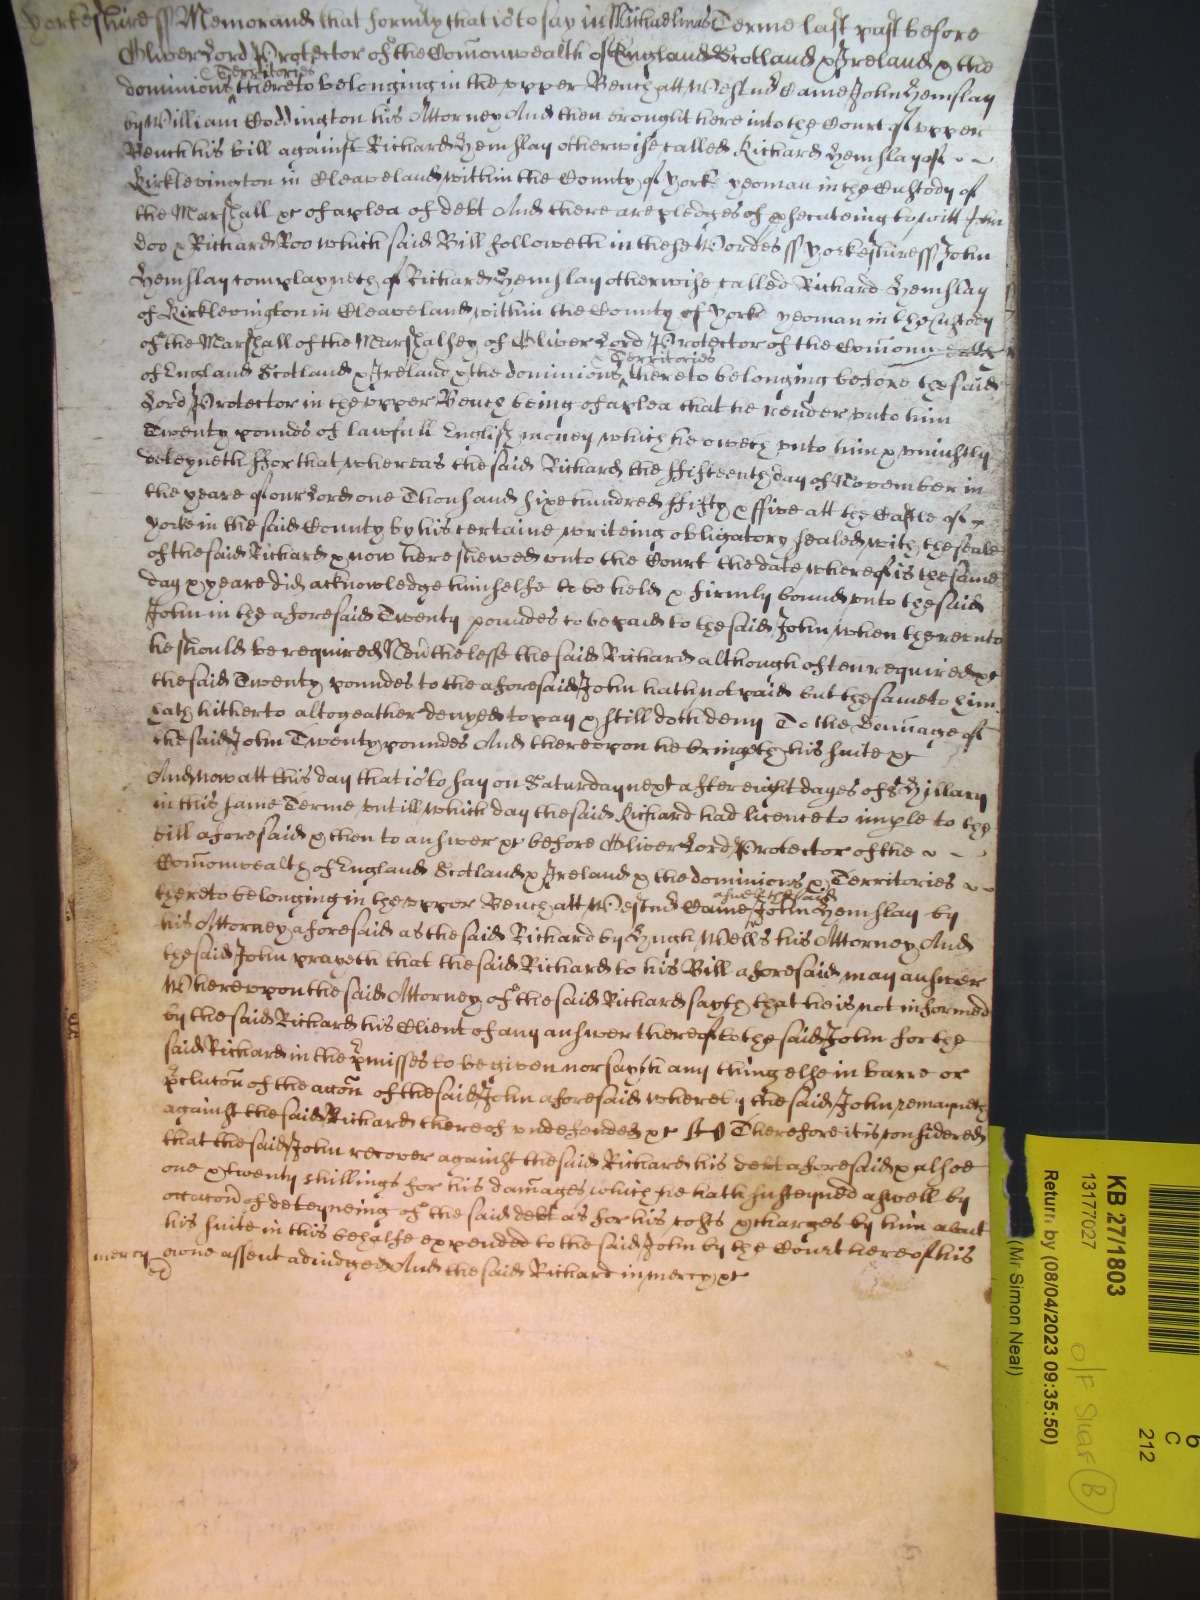 Yorkeshire ss Memorand that formly that is to say in Michaelmas Terme last past before
Oliver Lord Protector of the Comonwealth of England Scotland & Ireland & the
Territories
dominions thereto belonging in the upper Bench att Westmr Came John Hemslay
by William Coddington his Attorney And then brought here into the Court of upper
Bench his bill against Richard Hemslay otherwise called Richard Hemslay of
Kirklevington in Cleaveland within the County of York yeoman in the Custody of
the Marshall &c of a plea of debt And there are pledges of psecuteing to witt John
doo & Richard Roo which said Bill followeth in these Wordes ss Yorkeshire ss John
Hemslay complayneth of Richard Hemslay otherwise called Richard Hemslay
of Kirklevington in Cleaveland within the County of York yeoman in the Custody
of the Marshall of the Marshalsey of Oliver Lord Protector of the Comonwealth
& Territories
of England Scotland & Ireland & the dominions thereto belonging before the said
Lord Protector in the upper Bench being of a plea that he render unto him
Twenty pounds of lawfull English money which he oweth unto him & uniustly
deteyneth ffor that whereas the said Richard the ffifteenth day of November in
the yeare of our Lord one Thousand sixe hundred ffifty & ffive att the Castle of
Yorke in the said County by his certaine writeing obligatory sealed with the seale
of the said Richard & now here shewed unto the Court the date whereof is the same
day & yeare did acknowledge himselfe to be held & firmly bound unto the said
John in the aforesaid Twenty poundes to be paid to the said John when thereunto
he should be required Neuthelesse the said Richard although often required &c
the said Twenty poundes to the aforesaid John hath not paid but the same to him
hath hitherto altogeather denyed to pay & still doth deny To the Damage of
the said John Twenty poundes And thereupon he bringeth his suite &c
And now att this day that is to say on Saturday next after eight dayes of St Hillary
in this same Terme untill which day the said Richard had licence to imple to the
bill aforesaid & then to answer &c before Oliver Lord Protector of the
Comonwealth of England Scotland & Ireland & the dominions & Territories
thereto belonging in the upper Bench att Westmr Came John Hemslay by
his Attorney aforesaid as the said Richard by Hugh Wells his Attorney And
the said John prayeth that the said Richard to his Bill aforesaid may answer
Whereupon the said Attorney of the said Richard sayth that he is not informed
by the said Richard his Client of any answer thereof to the said John for the
said Richard in the pmisses to be given nor sayth any thing else in barre or
pclution of the accon of the said John aforesaid whereby the said John remayneth
against the said Richard thereof undefended &c Therefore it is considered
that the said John recover against the said Richard his debt aforesaid & alsoe
one & twenty shillings for his damages which he hath susteyned aswell by
occacon of deteyneing of the said debt as for his costs & charges by him about
his suite in this behalfe expended to the said John by the Court here of his
mercy owne assent adiudged And the said Richard in mercy &c
KB 27/1803
13177027
Return by (08/04/2023 09:35:50)
(Mr Simon Neal)
6
C
212
O/F Shaf B